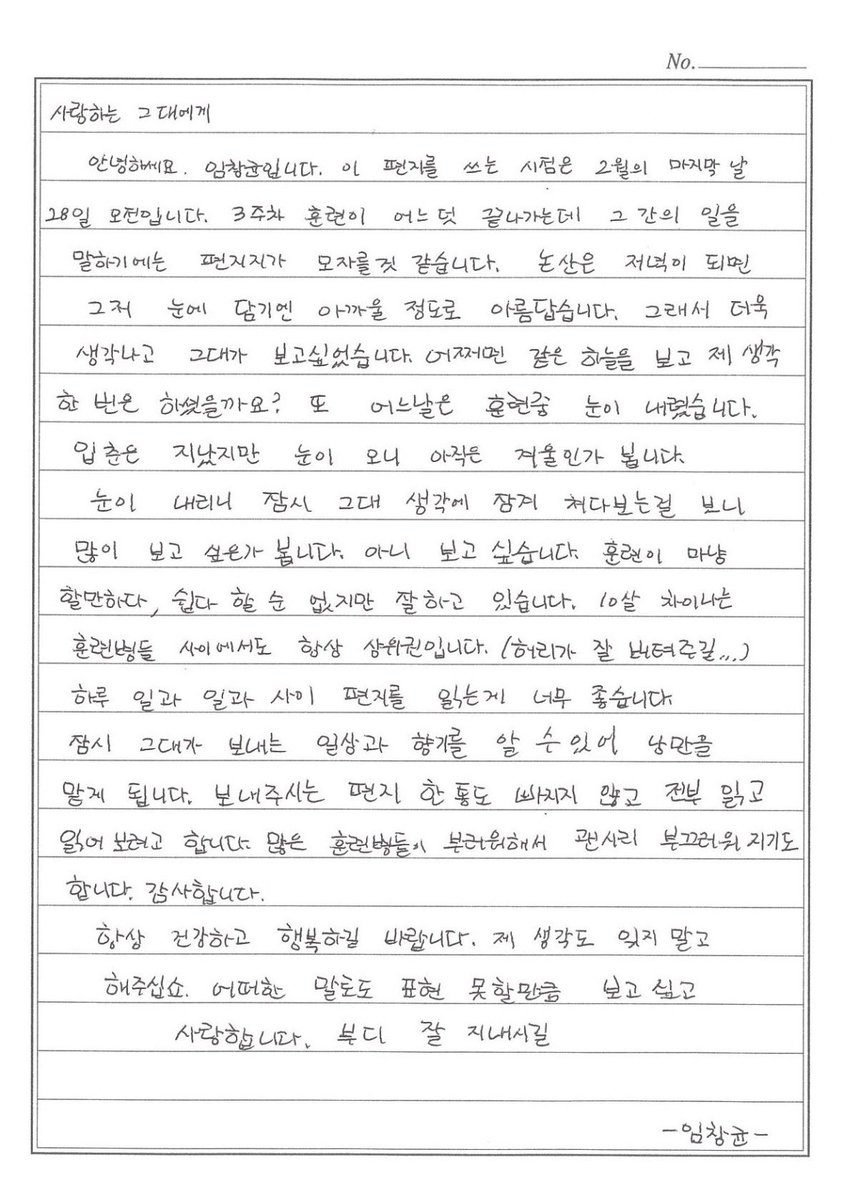 No.
사랑하는 그대에게
안녕하세요. 임창균입니다. 이 편지를 쓰는 시점은 2월의 마지막 날
28일 오전입니다. 3주차 훈련이 어느덧 끝나가는데 그 간의 일을
말하기에는 편지지가 모자를것 같습니다. 논산은 저녁이 되면
그저 눈에 담기엔 아까울 정도로 아름답습니다. 그래서 더욱
생각나고 그대가 보고싶었습니다. 어쩌면 같은 하늘을 보고 제 생각
한 번은 하셨을까요? 또 어느날은 훈련중 눈이 내렸습니다.
입춘은 지났지만 눈이 오니 아직은 겨울인가 봅니다.
눈이 내리니 잠시 그대 생각에 잠겨 쳐다보는걸 보니
많이 보고 싶은가 봅니다. 아니 보고 싶습니다. 훈련이 마냥
할만하다, 쉽다 할 순 없지만 잘하고 있습니다. 10살 차이나는
훈련병들 사이에서도 항상 상위권입니다. (허리가 잘 버텨주길...)
하루 일과 일과 사이 편지를 읽는게 너무 좋습니다.
잠시 그대가 보내는 일상과 향기를 알 수 있어 낭만을
맡게 됩니다. 보내주시는 편지 한 통도 빠지지 않고 전부 읽고
읽어보려고 합니다. 많은 훈련병들이 부러워해서 괜시리 부끄러워 지기도
합니다. 감사합니다.
항상 건강하고 행복하길 바랍니다. 제 생각도 잊지 말고
해주십쇼. 어떠한 말로도 표현 못할만큼 보고 싶고
사랑합니다. 부디 잘 지내시길
-임창균-